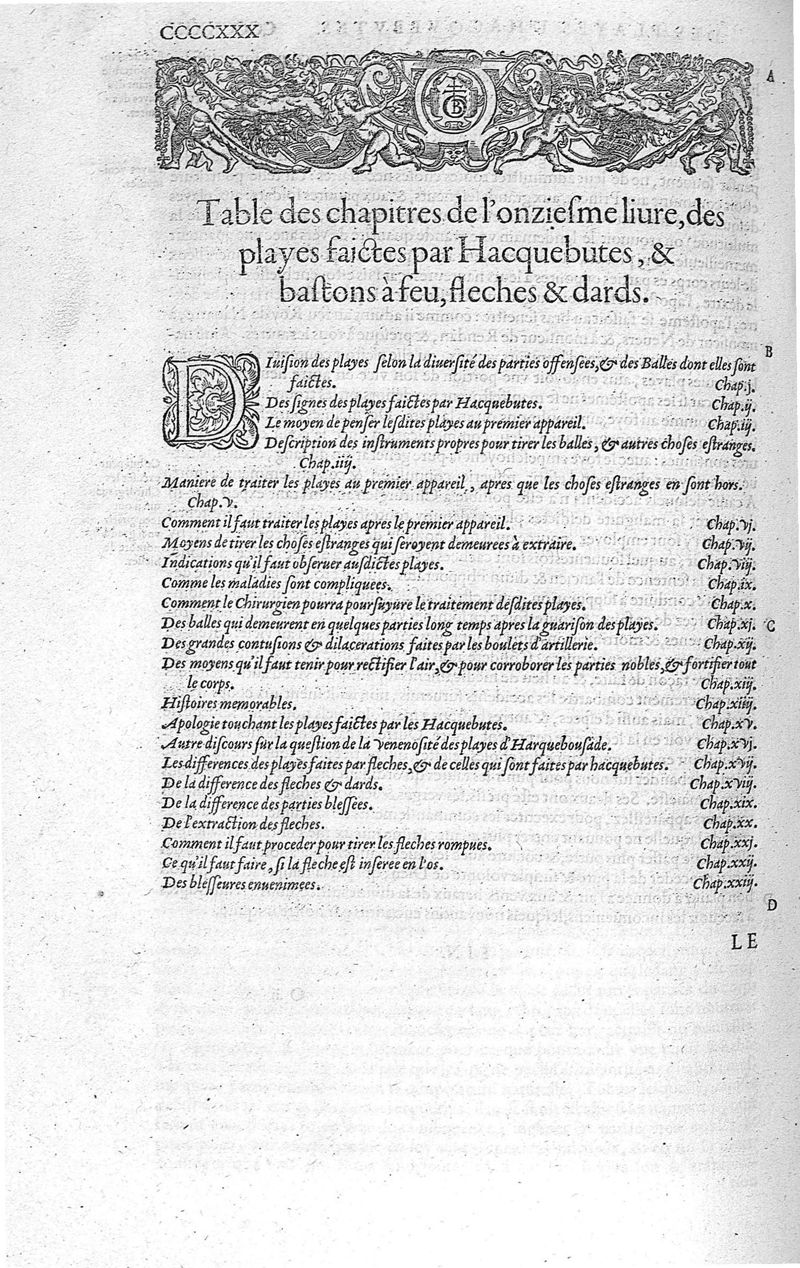 CCCCXXX
A
CB
Table des chapitres de l'onzieſme liure, des
playes faictes par Hacquebutes, &
baſtons à feu, fleches & dards.
B
DIuiſion des playes ſelon la diuerſité des parties offenſées, & des Balles dont elles ſont
faictes. Chap.j.
Des ſignes des playes faictes par Hacquebutes. Chap.ij.
Le moyen de penſer leſdites playes au premier appareil. Chap.iij.
Deſcription des inſtruments propres pour tirer les balles, & autres choſes eſtranges.
Chap.iiij.
Maniere de traiter les playes au premier appareil, apres que les choſes eſtranges en ſont hors.
Chap.v.
Comment il faut traiter les playes apres le premier appareil. Chap.vj.
Moyens de tirer les choſes eſtranges qui ſeroyent demeurees à extraire. Chap.vij.
Indications qu'il faut obſeruer auſdictes playes. Chap.viij.
Comme les maladies ſont compliquees. Chap.ix.
Comment le Chirurgien pourra pourſuyure le traitement deſdites playes. Chap.x.
Des balles qui demeurent en quelques parties long temps apres la guariſon des playes. Chap.xj.
C
Des grandes contuſions & dilacerations, faites par les boulets d'artillerie. Chap.xij.
Des moyens qu'il faut tenir pour rectifier l'air, & pour corroborer les parties nobles, & fortifier tout
le corps. Chap.xiij.
Hiſtoires memorables. Chap.xiiij.
Apologie touchant les playes faictes par les Hacquebutes. Chap.xv.
Autre diſcours ſur la queſtion de la venenoſité des playes d'Harquebouſade. Chap.xvj.
Les differences des playes faites par fleches, & de celles qui ſont faites par hacquebutes. Chap.xvij.
De la difference des fleches & dards. Chap.xviij.
De la difference des parties bleſſees. Chap.xix.
De l'extraction des fleches. Chap.xx.
Comment il faut proceder pour tirer les fleches rompues. Chap.xxj.
Ce qu'il faut faire, ſi la fleche eſt inſeree en l'os. Chap.xxij.
Des bleſſeures enuenimees. Chap.xxiij.
D
LE